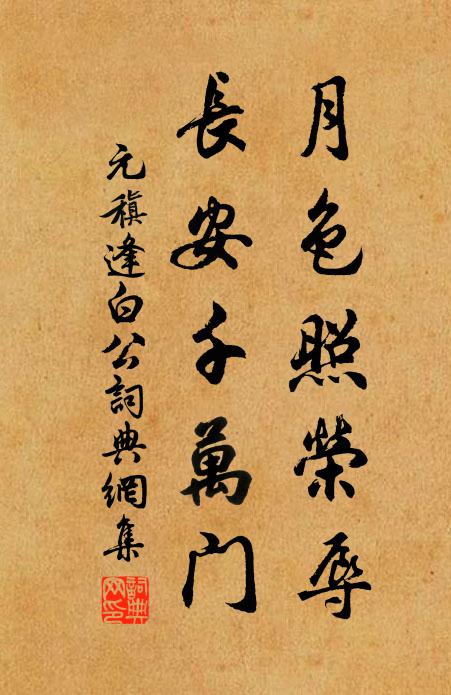 月色照榮辱
長安千萬門
元稹逢白公詞典網集
詞典
网印